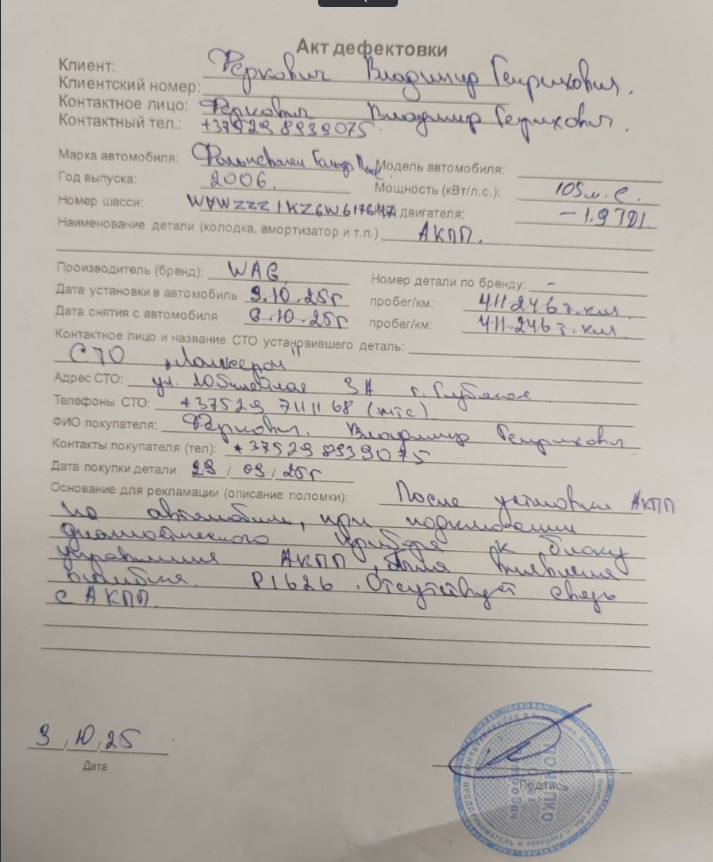 Акт дефектовки
Клиент: Феркович Владимир Генрихович.
Клиентский номер:
Контактное лицо: Феркович Владимир Генрихович.
Контактный тел.: +37529 8939075.
Марка автомобиля: Фольксваген Гольф Модель автомобиля:
Год выпуска: 2006. Мощность (кВт/л.с.): 105 л.с.
Номер шасси: двигателя: – 1.9 TDI.
Наименование детали (колодка, амортизатор и т.п.) АКПП.
Производитель (бренд): WAG. Номер детали по бренду: –
Дата установки в автомобиль 9.10.25г пробег/км: 411.246 т.км.
Дата снятия с автомобиля 8.10.25г пробег/км: 411.246 т.км.
Контактное лицо и название СТО установившего деталь:
СТО
Адрес СТО: ул. Юбилейная 3А г. Глубокое
Телефоны СТО: +37529 7111168 (мтс).
ФИО покупателя: Феркович. Владимир Генрихович
Контакты покупателя (тел): +37529 8939075
Дата покупки детали 29, 09, 25г
Основание для рекламации (описание поломки): После установки АКПП
на автомобиль, при подключении
диагностического прибора к блоку
управления АКПП, была выявлена
ошибка. P1626. Отсутствует связь
с АКПП.
9, 10, 25
Дата
Подпись